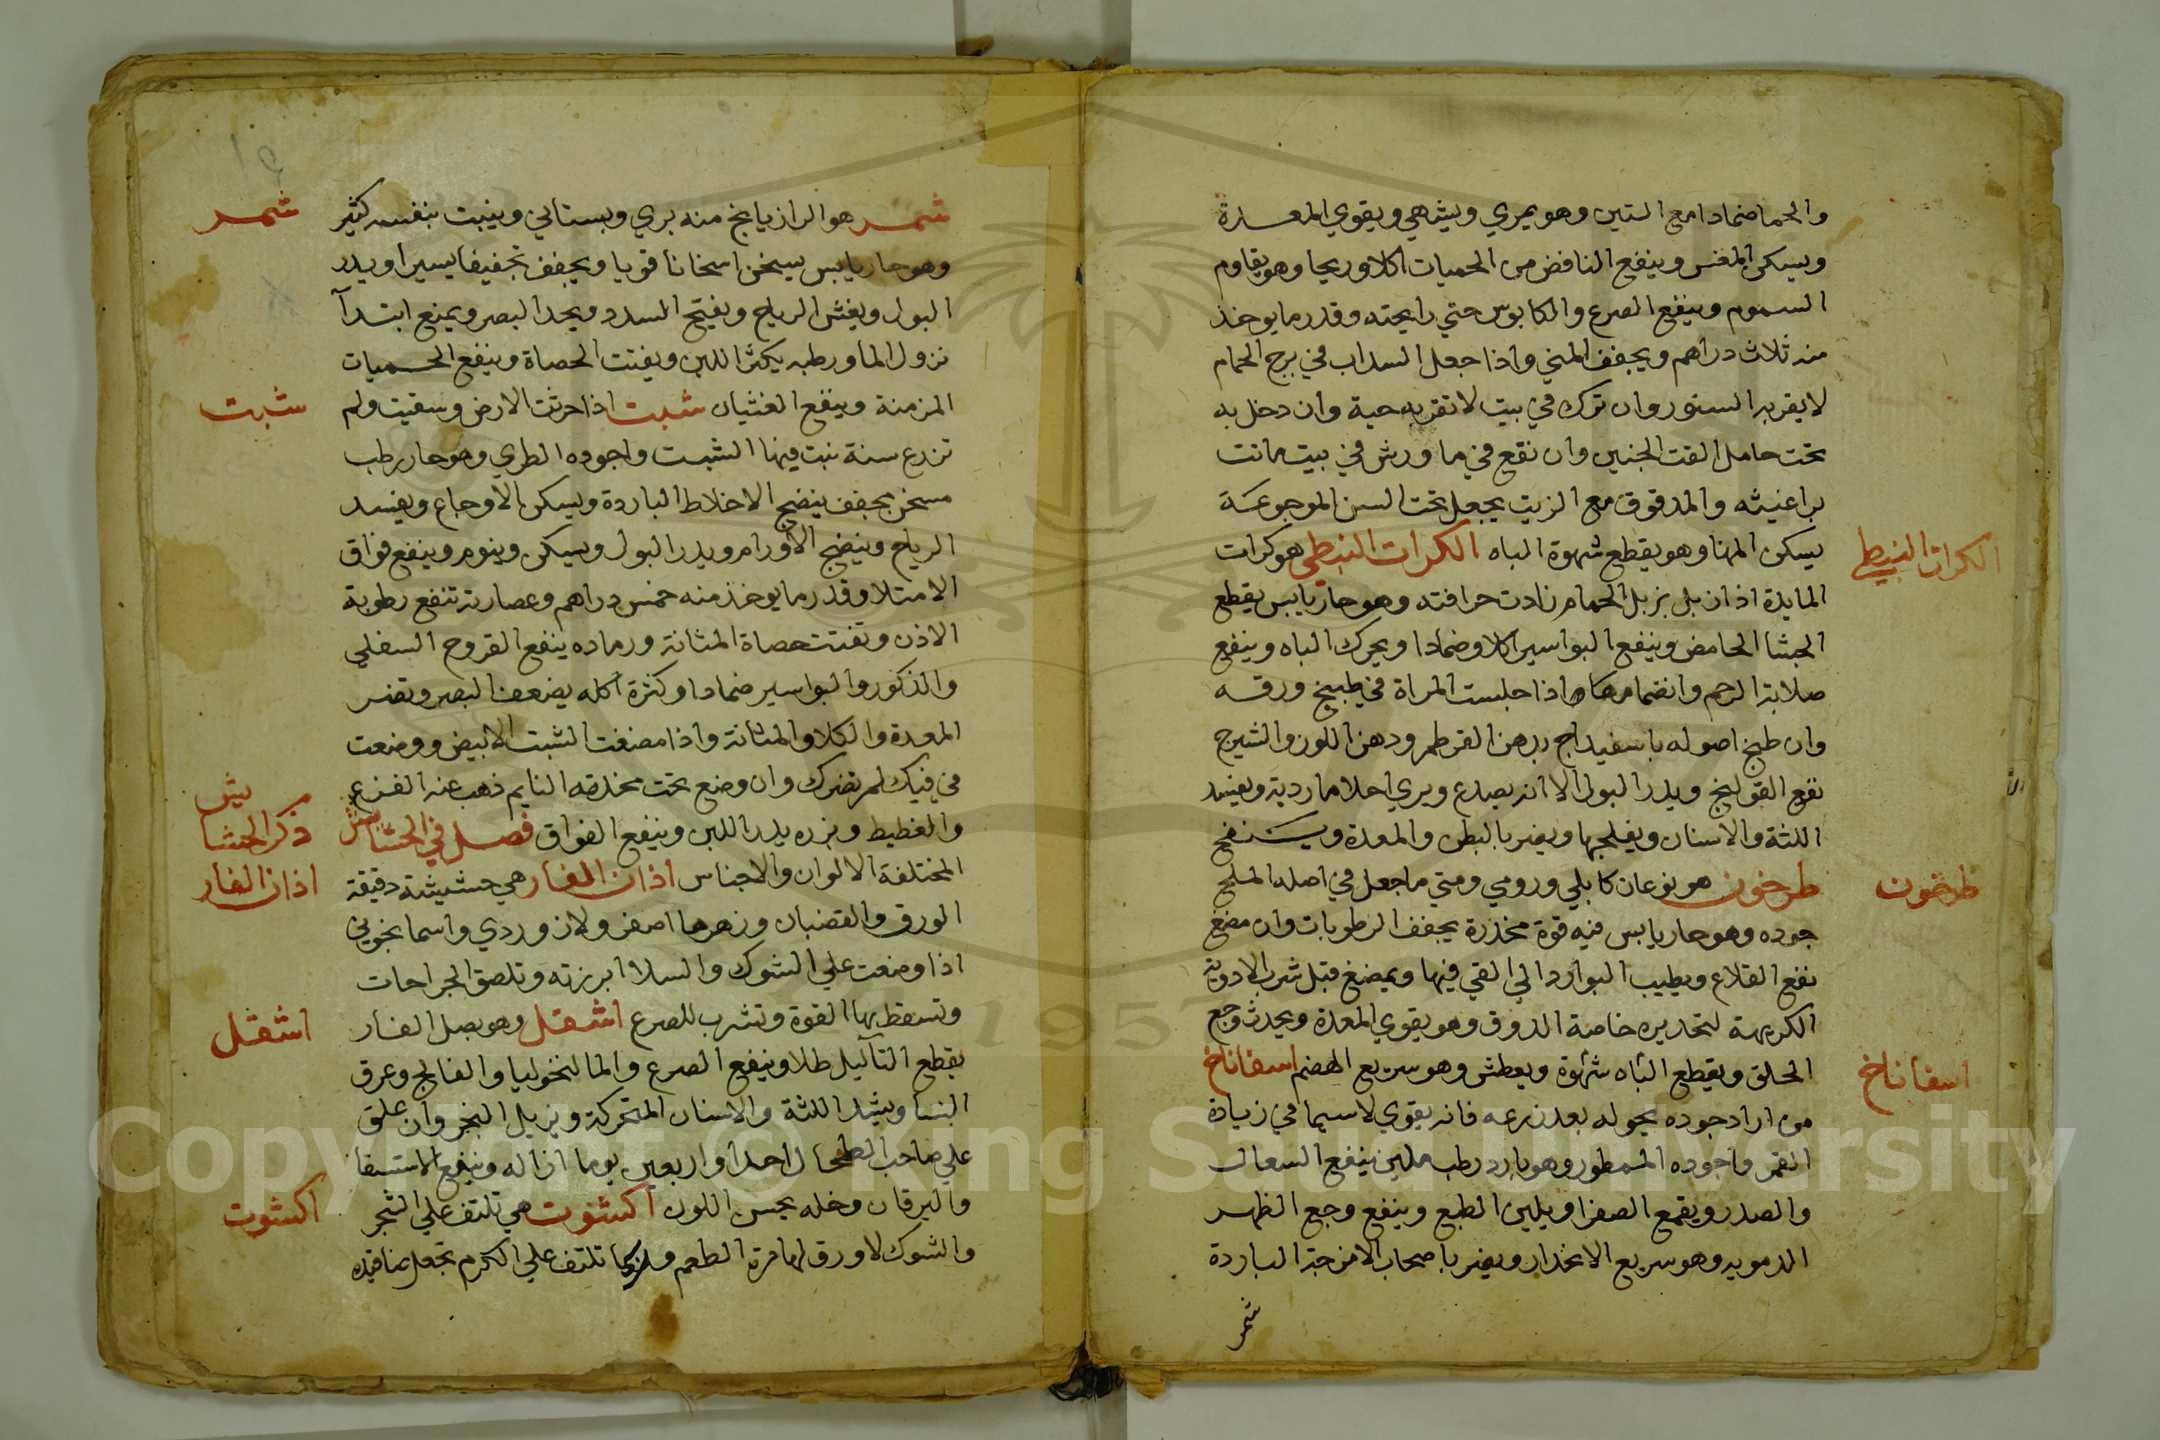 والحما ضمادا مع التين وهو يمري ويشهي ويقوي المعدة
ويسكن المغس وينفع النافض من الحميات اكلا وريحا وهو يقاوم
السموم وينفع الصرع والكابوس حتي رايحته وقدر ما يوخذ
منه ثلاث دراهم ويجفف المني واذا جعل السداب في برج الحمام
لا يقربه السنور وان ترك في بيت لا تقربه حية وان دخل به
تحت حامل القت الجنين وان نقع في ما ورش في بيت ماتت
براغيثه والمدقوق مع الزيت يجعل تحت السن الموجوعة
يسكن المها وهو يقطع شهوة الباه الكرات النبطي هو كرات
الكرات النبطي
المايدة اذا زبل بزبل الحمام زادت حرافته وهو حار يابس يقطع
الجشا الحامض وينفع البواسير اكلا وضمادا ويحرك الباه وينفع
صلابة الرحم وانضمامها واذا جلست المراة في طبيخ ورقه
وان طبخ اصوله باسفيداج بدهن القرطم ودهن اللوز والشيرج
نفع القولنج ويدر البول الا انه يصدع ويري احلاما ردية ويفسد
اللثة والاسنان ويفلجها ويضر بالبطن والمعدة وينفخ
طرخون هو نوعان كابلي ورومي ومتي ما جعل في اصله الملح
طرخون
جوده وهو حار يابس فيه قوة مخدرة يجفف الرطوبات وان مضغ
نفع القلاع ويطيب البوارد الي القي فيها ويمضغ قبل شرب الادوية
الكريهة لتخديره حاصة الذوق وهو يقوي المعدة ويحدث وجع
الحلق ويقطع الباه شهوة ويعطش وهو سريع الهضم اسفاناخ
اسفاناخ
من اراد جوده يحوله بعد زرعه فانه يقوي لا سيما في زيادة
القمر واجوده الممطور وهو بارد رطب ملين ينفع السعال
والصدر ويقمع الصفرا ويلين الطبع وينفع وجع الظهر
الدمويه وهو سريع الانحدار ويضر باصحاب الامزجة الباردة
شمر
شمر هو الرازيانج منه بري وبستاني وينبت بنفسه كثير
شمر
وهو حار يابس يسخن اسخانا قويا ويجفف تجفيفا يسيرا ويدر
البول ويفش الرياح ويفتح السدد ويحد البصر ويمنع ابتدآ
نزول الما ورطبه يكثر اللبن ويفتت الحصاة وينفع الحميات
المزمنة وينفع الغثيان شبت اذا حرثت الارض وسقيت ولم
شبت
تزرع سنة نبت فيها الشبت واجوده الطري وهو حار رطب
مسخن مجفف ينضج الاخلاط الباردة ويسكن الاوجاع ويفسد
الرياح وينضج الاورام ويدر البول ويسكن وينوم وينفع فواق
الامتلا وقدر ما يوخذ منه خمس دراهم وعصارته تنفع رطوبة
الاذن وتفتت حصاة المثانة ورماده ينفع القروح السفلي
والذكور والبواسير ضمادا وكثرة اكله يضعف البصر وتضر
المعدة والكلا والمثانة واذا مضغت الشبت الابيض ووضعت
في فيك لم تضرك وان وضع تحت مخدته النايم ذهب عنه الفزع
والغطيط وبزره يدر اللبن وينفع الفواق فصل في الحشائش
ذكر الحشايش
المختلفة الالوان والاجناس اذان الفار هي حشيشة دقيقة
اذان الفار
الورق والقضبان وزهرها اصفر ولازوردي واسمانجوني
اذا وضعت علي الشوك والسلا ابرزته وتلصق الجراحات
وتسقط بها القوة وتشرب للصرع اشقل وهو بصل الفار
اشقل
يقطع التآليل طلا وينفع الصرع والمالنخوليا والفالج وعرق
النسا ويشد اللثة والاسنان المتحركة ويزيل البخر وان علق
علي صاحب الطحال احدا واربعين يوما ازاله وينفع الاستسقا
واليرقان وخله يحسن اللون اكشوت هي تلتف علي الشجر
اكشوت
والشوك لا ورق لها مرة الطعم وربما تلتف علي الكرم تجعل عناقيده